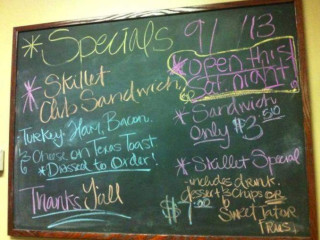 * Specials 9/ '13
* Skillet
Club Sandwich
Turkey, Ham, Bacon.
& Cheese on Texas Toast.
* Dressed to Order!
Thanks Y'all
* Open this
Sat. night!
* Sandwich
Only $3.50
* Skillet Special
includes drink,
dessert, & Chips or
Sweet Tator
Fries